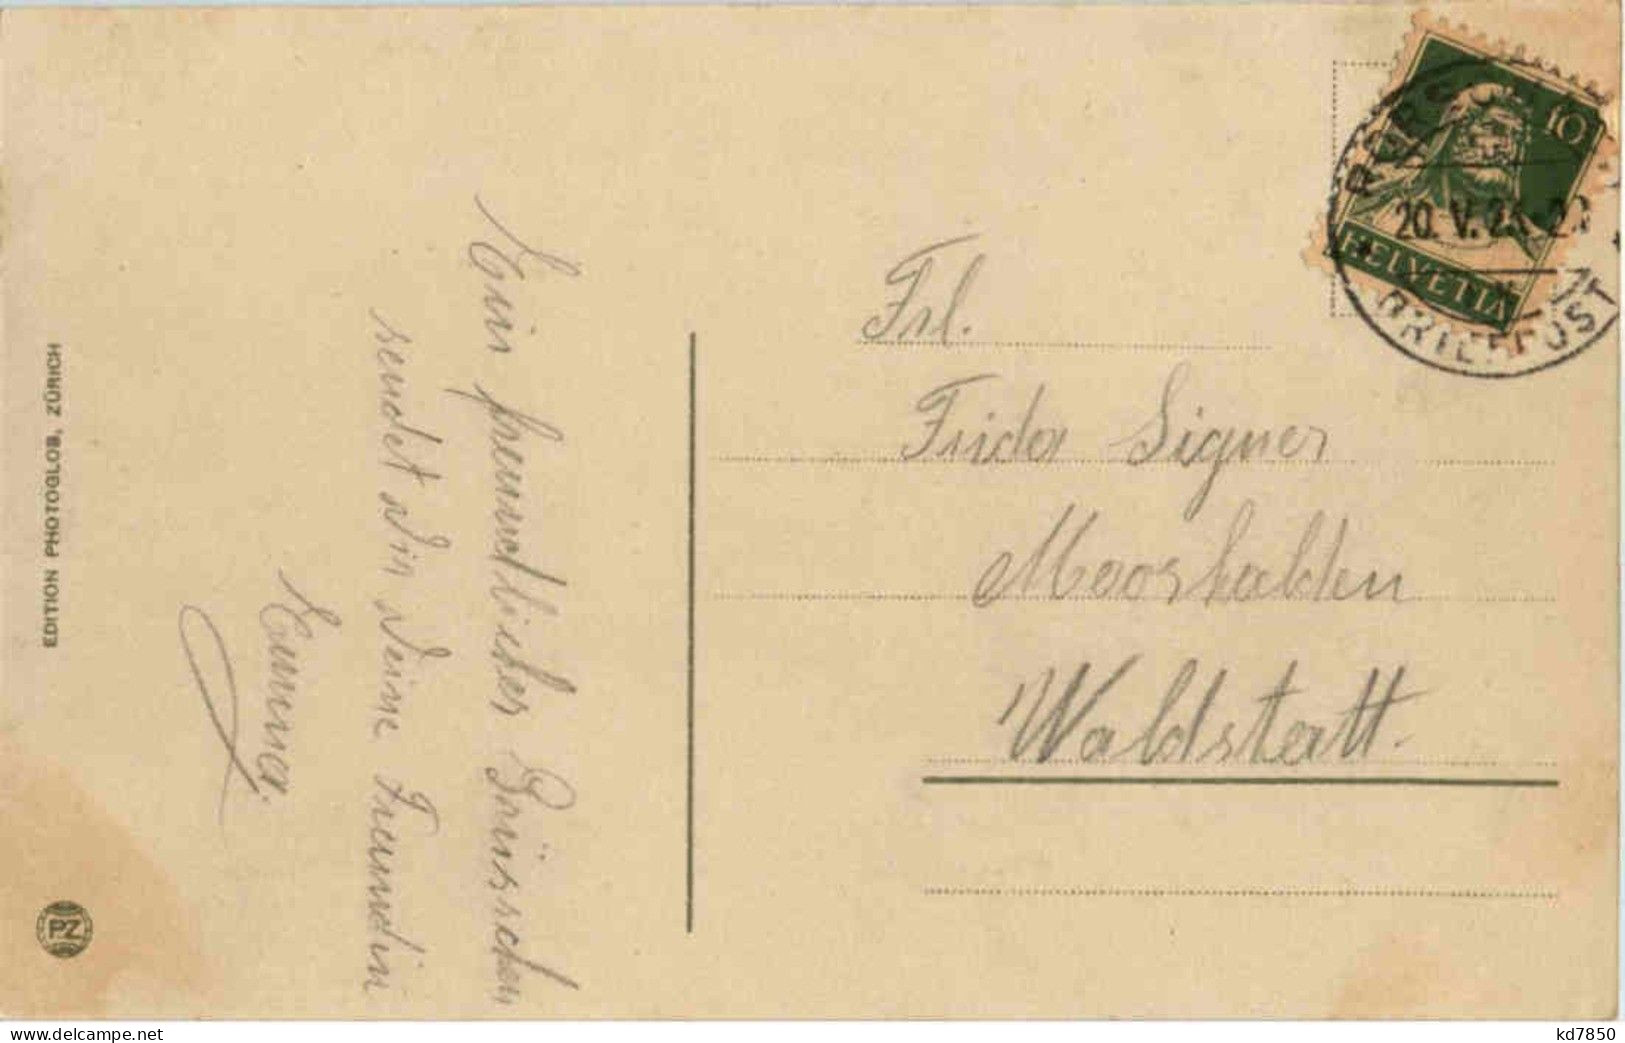 Ein freundliches Grüsschen
sendet Dir Deine Freundin
Emma.
EDITION PHOTOGLOB, ZÜRICH
PZ
10
HELVETIA
RORSCHACH
20. V. 
BRIEFPOST
Frl.
Frida Signer
Mooshalden
Waldstatt.
kd7850